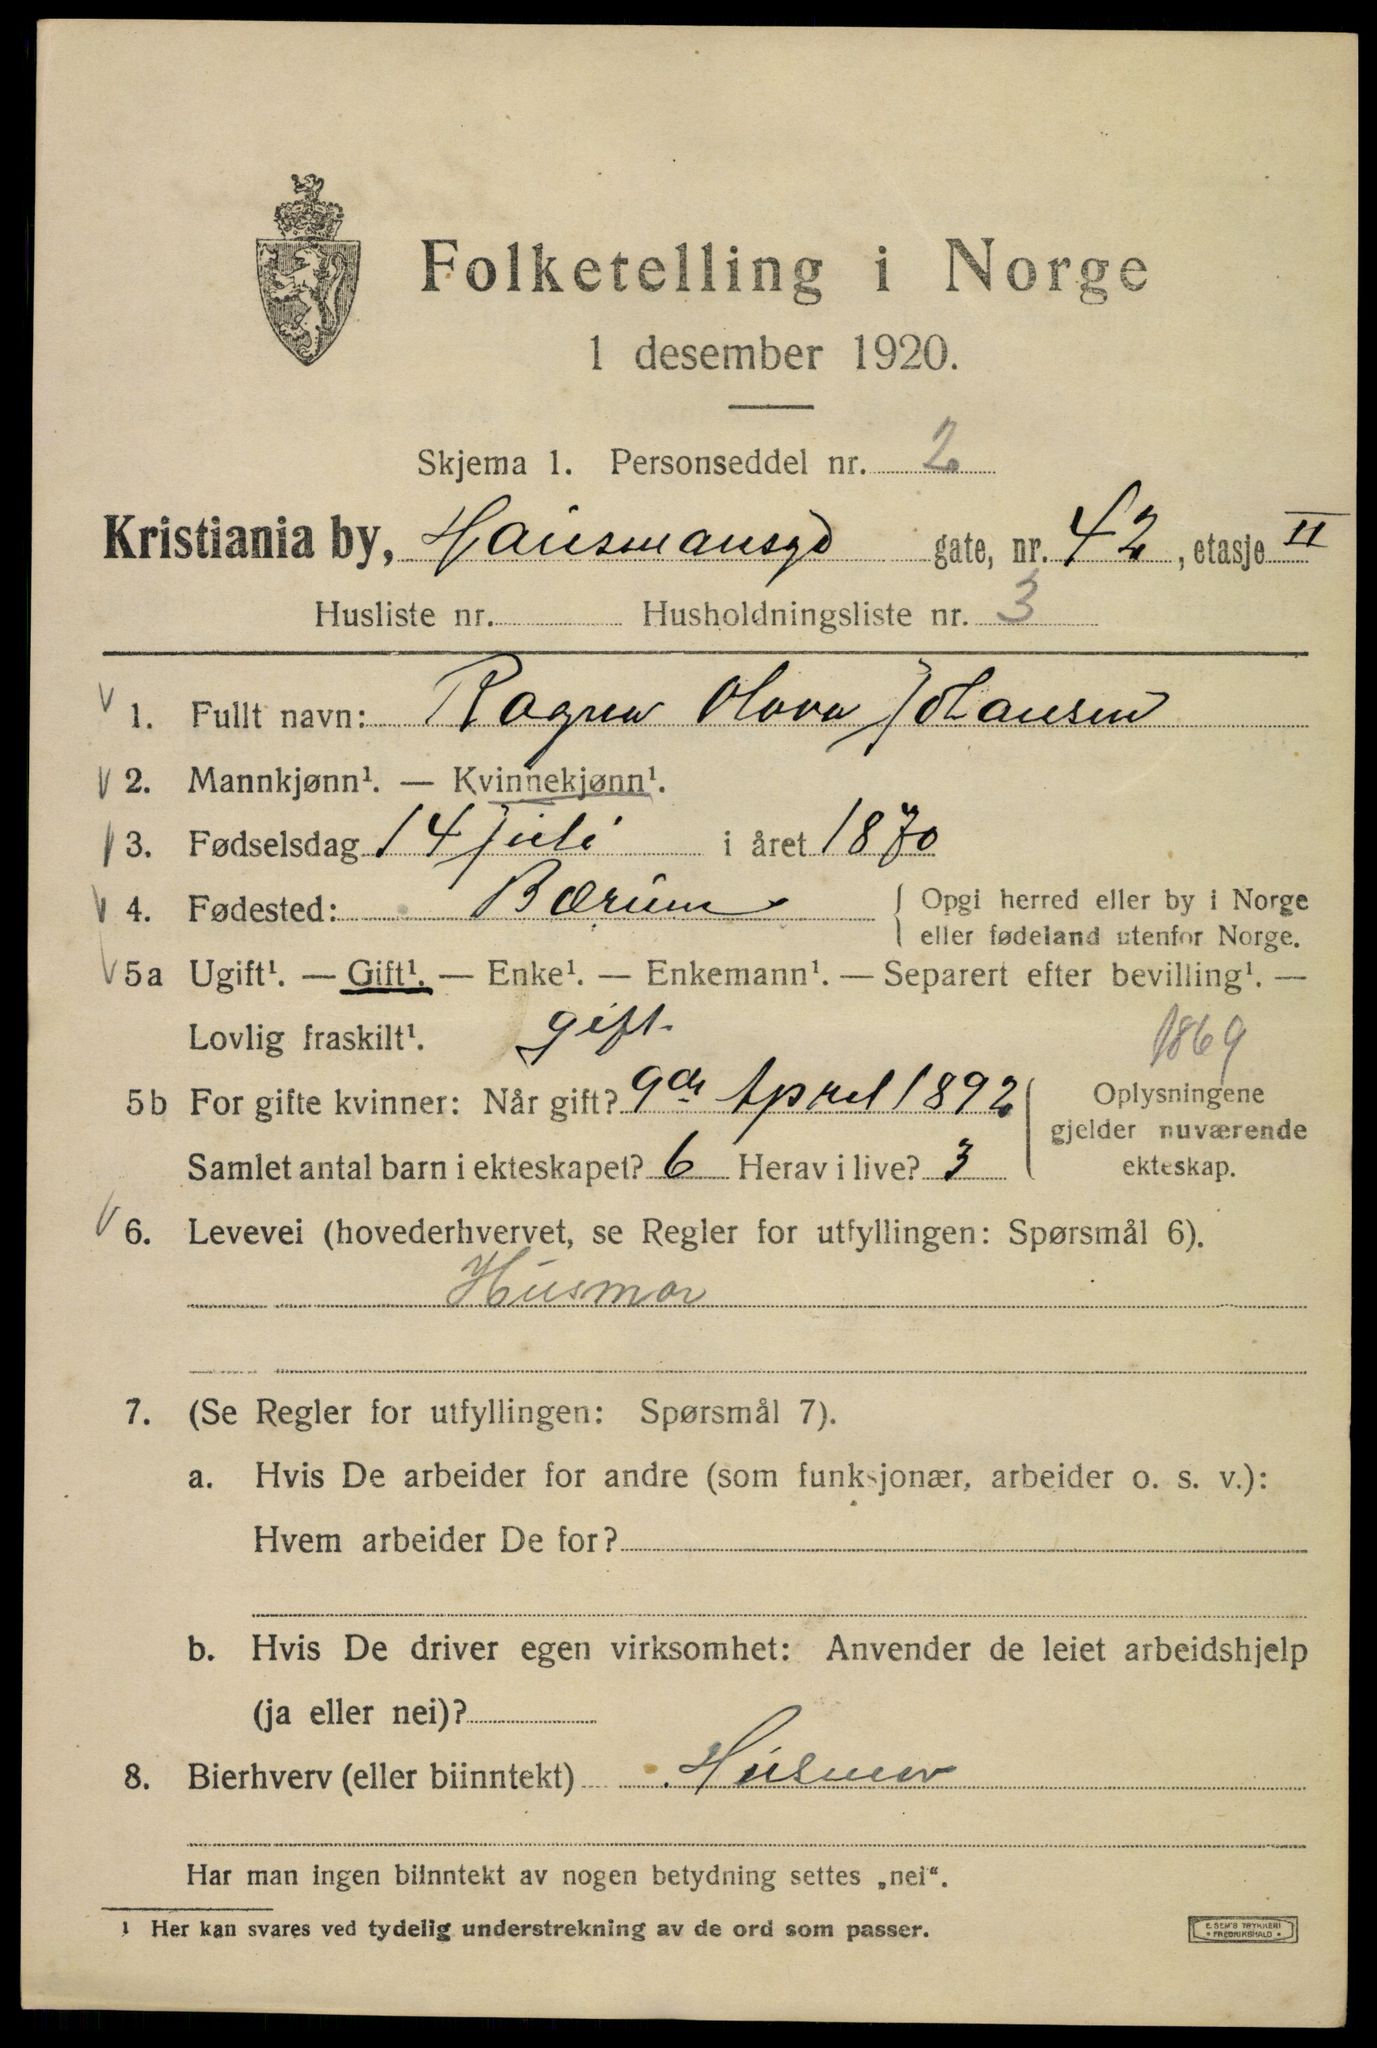 Folketelling i Norge
1 desember 1920.
Skjema 1. Personseddel nr. 2
Kristiania by, Hausmansgd gate, nr. 42, etasje II
Husliste nr. Husholdningsliste nr. 3
1. Fullt navn: Ragna Olava Johansen
2. Mannkjønn¹. — Kvinnekjønn¹.
3. Fødselsdag 14 Juli i året 1870
4. Fødested: Bærum { Opgi herred eller by i Norge
eller fødeland utenfor Norge.
5a Ugift¹. — Gift¹. — Enke¹. — Enkemann¹. — Separert efter bevilling¹. —
Lovlig fraskilt¹. gift. 1869
5b For gifte kvinner: Når gift? 9de April 1892 { Oplysningene
gjelder nuværende
Samlet antal barn i ekteskapet? 6 Herav i live? 3 ekteskap.
6. Levevei (hovederhvervet, se Regler for utfyllingen: Spørsmål 6).
Husmor
7. (Se Regler for utfyllingen: Spørsmål 7).
a. Hvis De arbeider for andre (som funksjonær, arbeider o. s. v.):
Hvem arbeider De for?
b. Hvis De driver egen virksomhet: Anvender de leiet arbeidshjelp
(ja eller nei)?
8. Bierhverv (eller biinntekt) Husmor
Har man ingen biinntekt av nogen betydning settes „nei“.
¹ Her kan svares ved tydelig understrekning av de ord som passer.
E. SEM'S TRYKKERI
• FREDRIKSHALD •